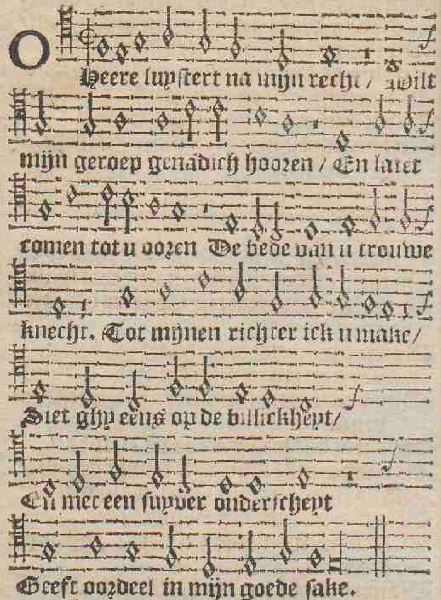 O Heere luystert na mijn recht / Wilt
mijn geroep genadich hooren / En laiet
comen tot u ooren De bede van u trouwe
knecht. Tot mijnen richter ick u make /
Siet ghy eens op de billickheyt /
En met een suyver onderscheyt
Geeft oordeel in mijn goede sake.